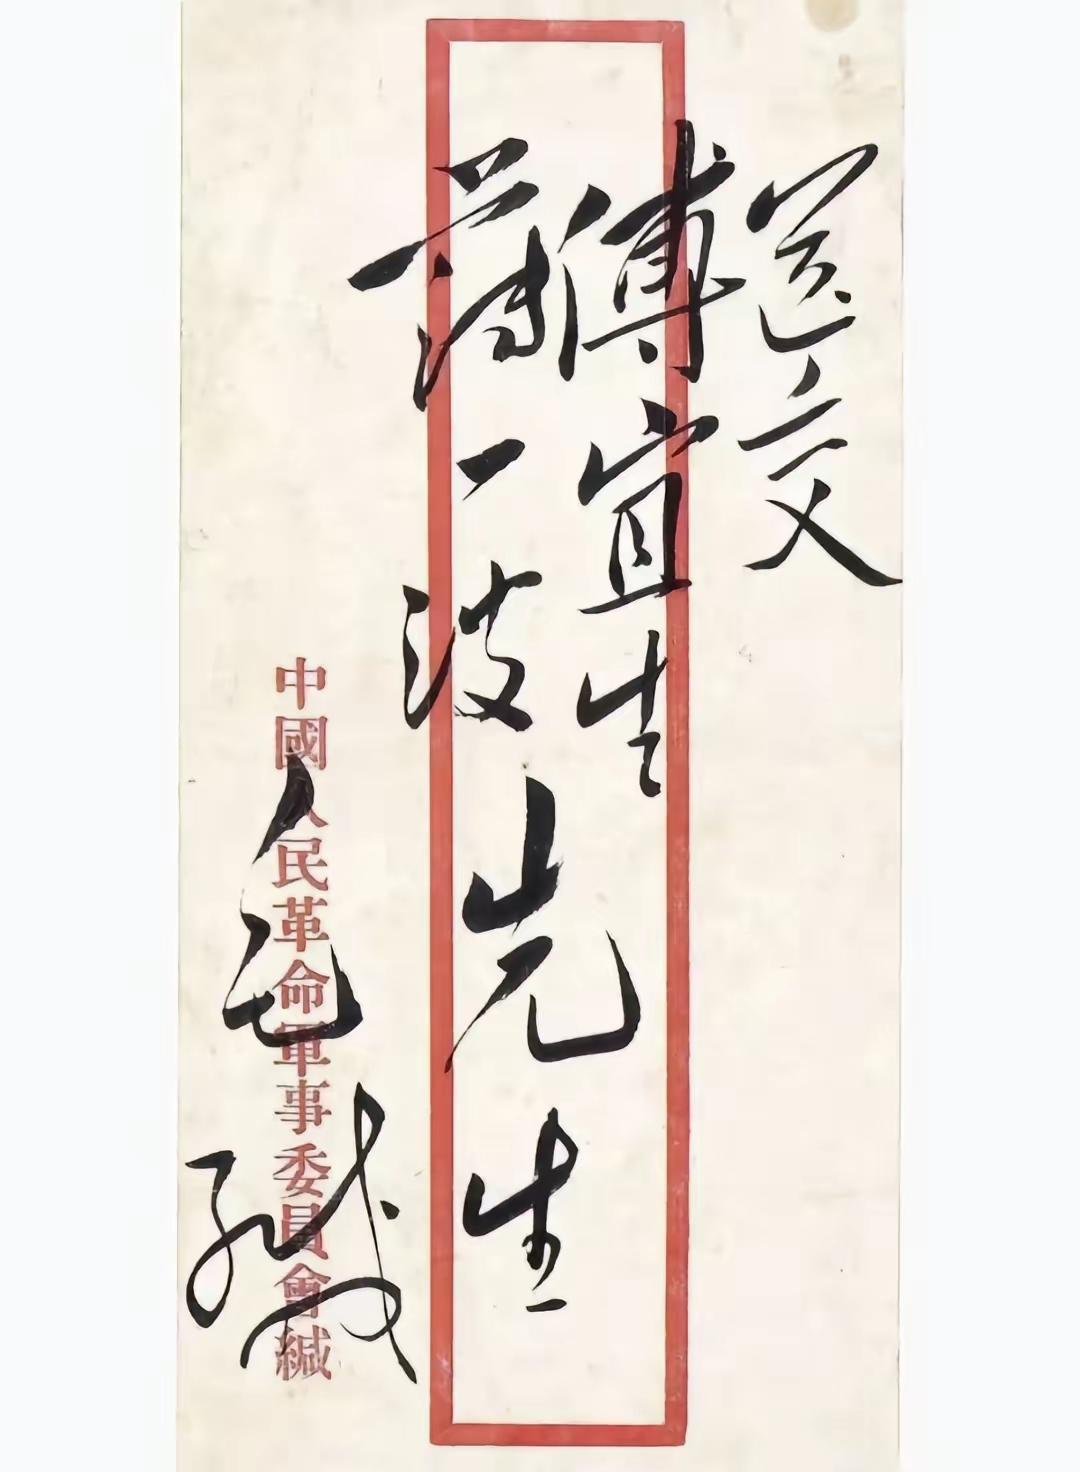 送交
傅宜生
薄一波先生
中國人民革命軍事委員會緘
毛緘